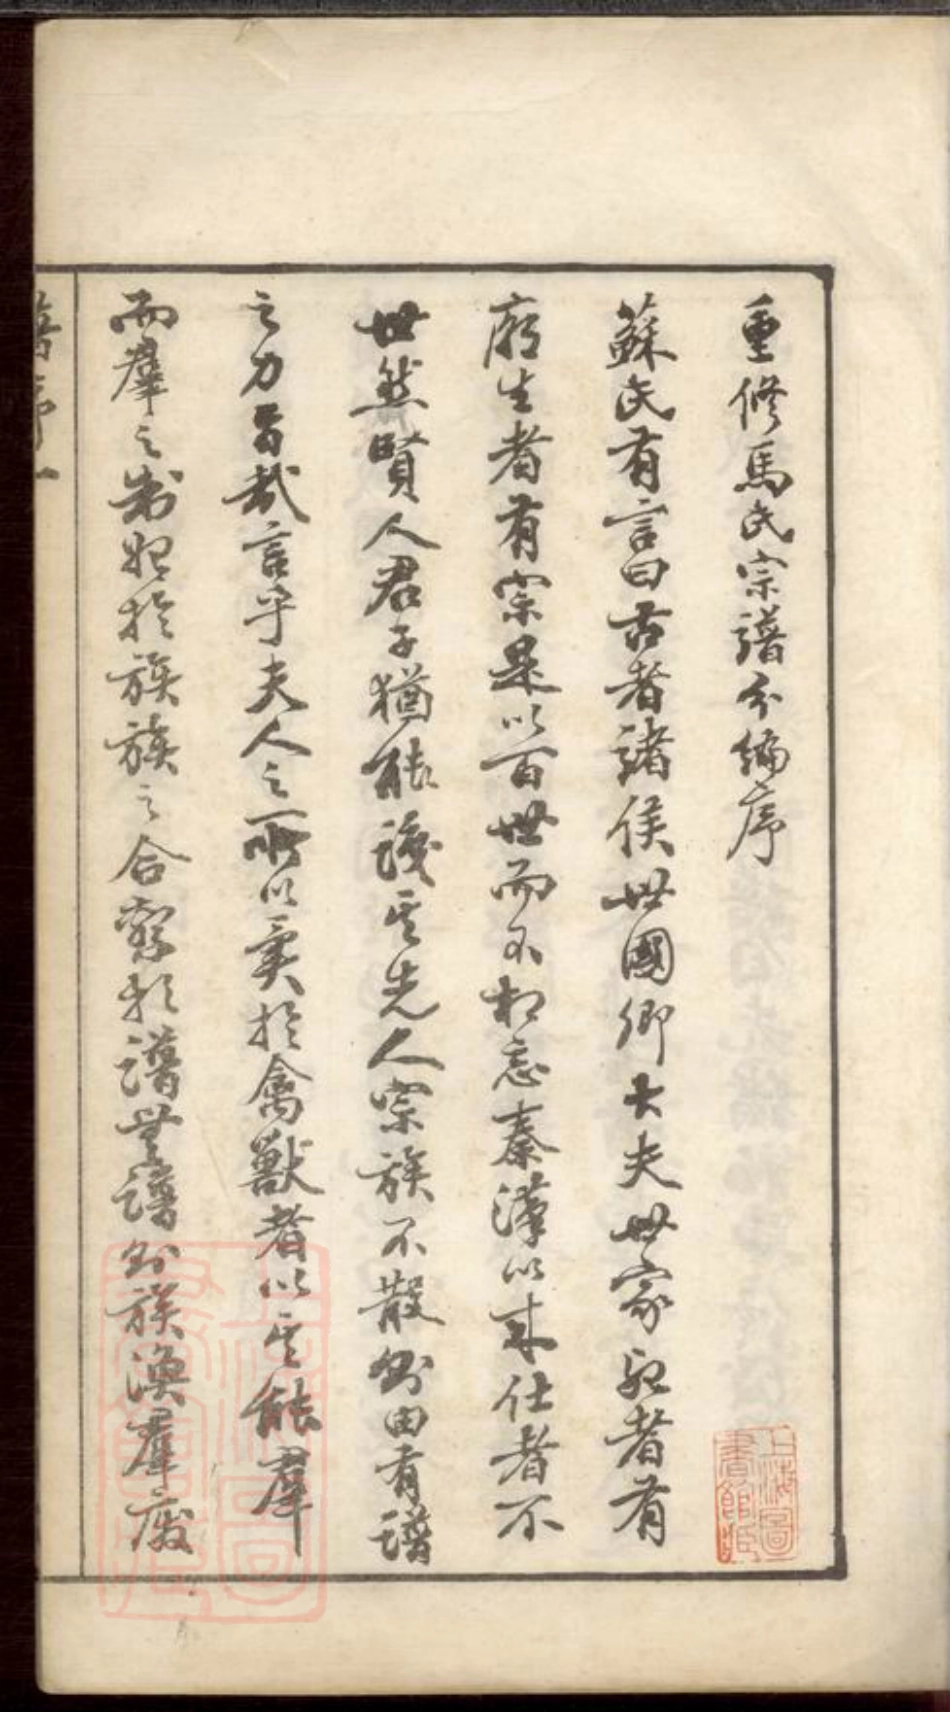 重修馬氏宗譜分編序
蘇氏有言曰古者諸侯世國卿大夫世家死者有
廟生者有宗是以百世而不相忘秦漢以來仕者不
世然賢人君子猶能識其先人宗族不散則由有譜
之力旨哉言乎夫人之所以異於禽獸者以其能羣
而羣之制始於族族之合繫於譜無譜則族渙羣廢
譜序 一
上海圖書館藏
上海圖書館藏